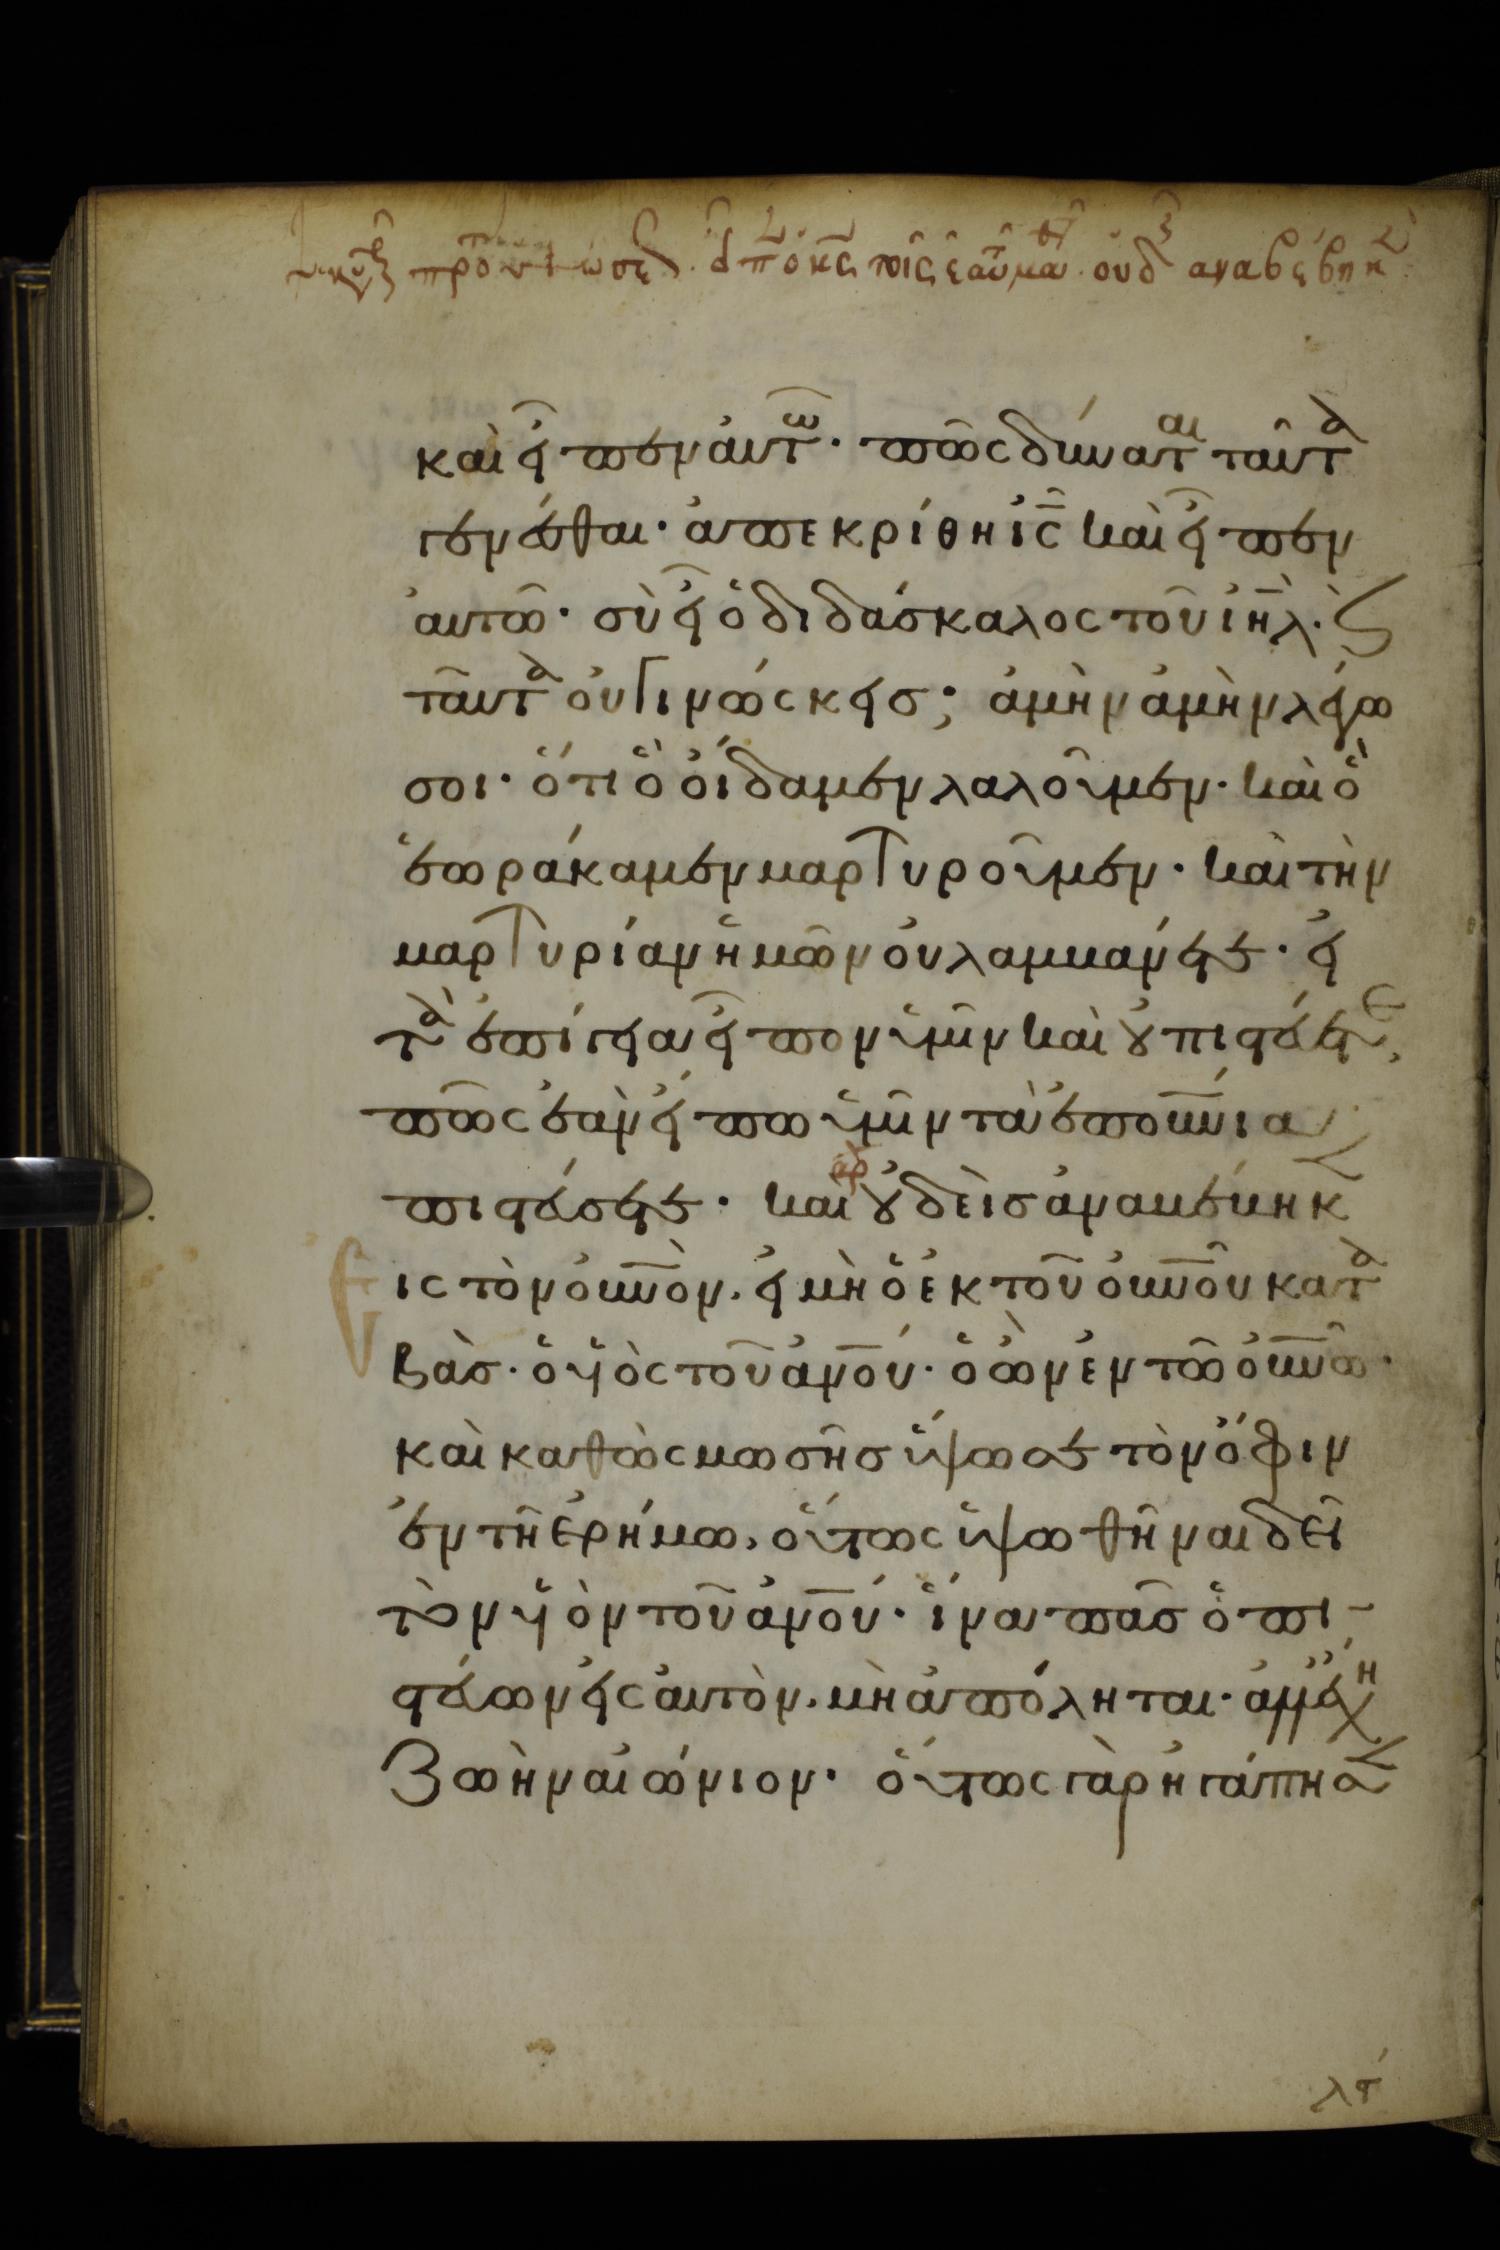 κυ πρὸ ὑψώσε εἶπ ὁ κς τοῖς ἑαυ μα οὐδ ἀναβέβηκ
καὶ εἶπεν αὐτῶ· πῶς δύναται ταῦτα
γενέσθαι· ἀπεκρίθη ις καὶ εἶπεν
αὐτῶ· σὺ εἶ ὁ διδάσκαλος τοῦ ιηλ· καὶ
ταῦτα οὐ γινώσκεις; ἀμὴν ἀμὴν λέγω
σοι· ὅτι ὃ οἴδαμεν λαλοῦμεν· καὶ ὃ
ἑωράκαμεν μαρτυροῦμεν· καὶ τὴν
μαρτυρίαν ἡμῶν οὐ λαμβάνετε· εἰ
τὰ ἐπίγεια εἶπον ὑμῖν καὶ οὐ πιστεύετε,
πῶς ἐὰν εἴπω ὑμῖν τὰ ἐπουνια
πιστεύσετε· καὶ οὐδεὶς ἀναβέβηκ
Εις τὸν οὐνὸν· εἰ μὴ ὁ ἐκ τοῦ οὐνοῦ κατα
βὰς· ὁ υἱὸς τοῦ ἀνου· ὁ ὢν ἐν τῶ οὐνῶ·
καὶ καθὼς μωσῆς ὕψωσε τὸν ὄφιν
ἐν τῆ ἐρήμω, οὕτως ὑψωθῆναι δεῖ
τὸν υἱὸν τοῦ ἀνου· ἵνα πᾶς ὁ πι-
στεύων εἰς αὐτὸν· μὴ ἀπόληται· ἀλλ' ἔχη
ζωὴν αἰώνιον· οὕτως γὰρ ἠγάπησ
λϛ